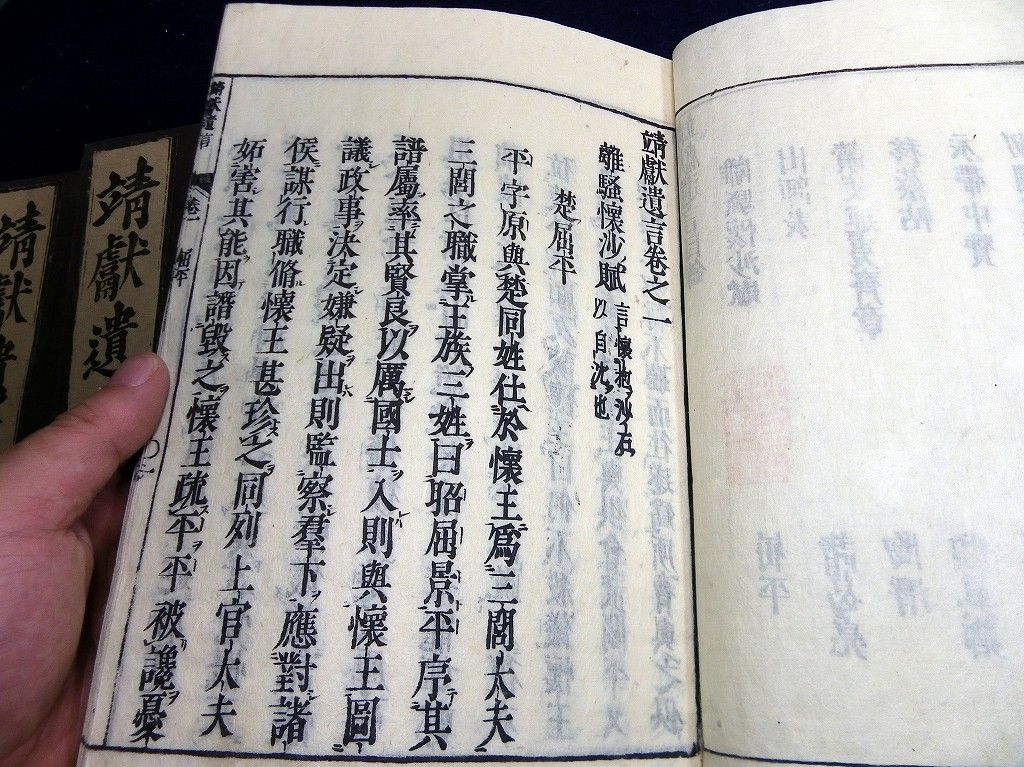 靖獻遺言卷之一
離騷懷沙賦 言懷抱沙石以自沈也
楚屈平
平字原與楚同姓仕於懷王爲三閭大夫
三閭之職掌王族三姓曰昭屈景平序其
譜屬率其賢良以厲國士入則與懷王圖
議政事決定嫌疑出則監察羣下應對諸
侯謀行職脩懷王甚珍之同列上官大夫
妬害其能因譖毀之懷王疏平平被讒憂
靖獻遺言 卷一 屈平
靖獻遺
靖獻遺